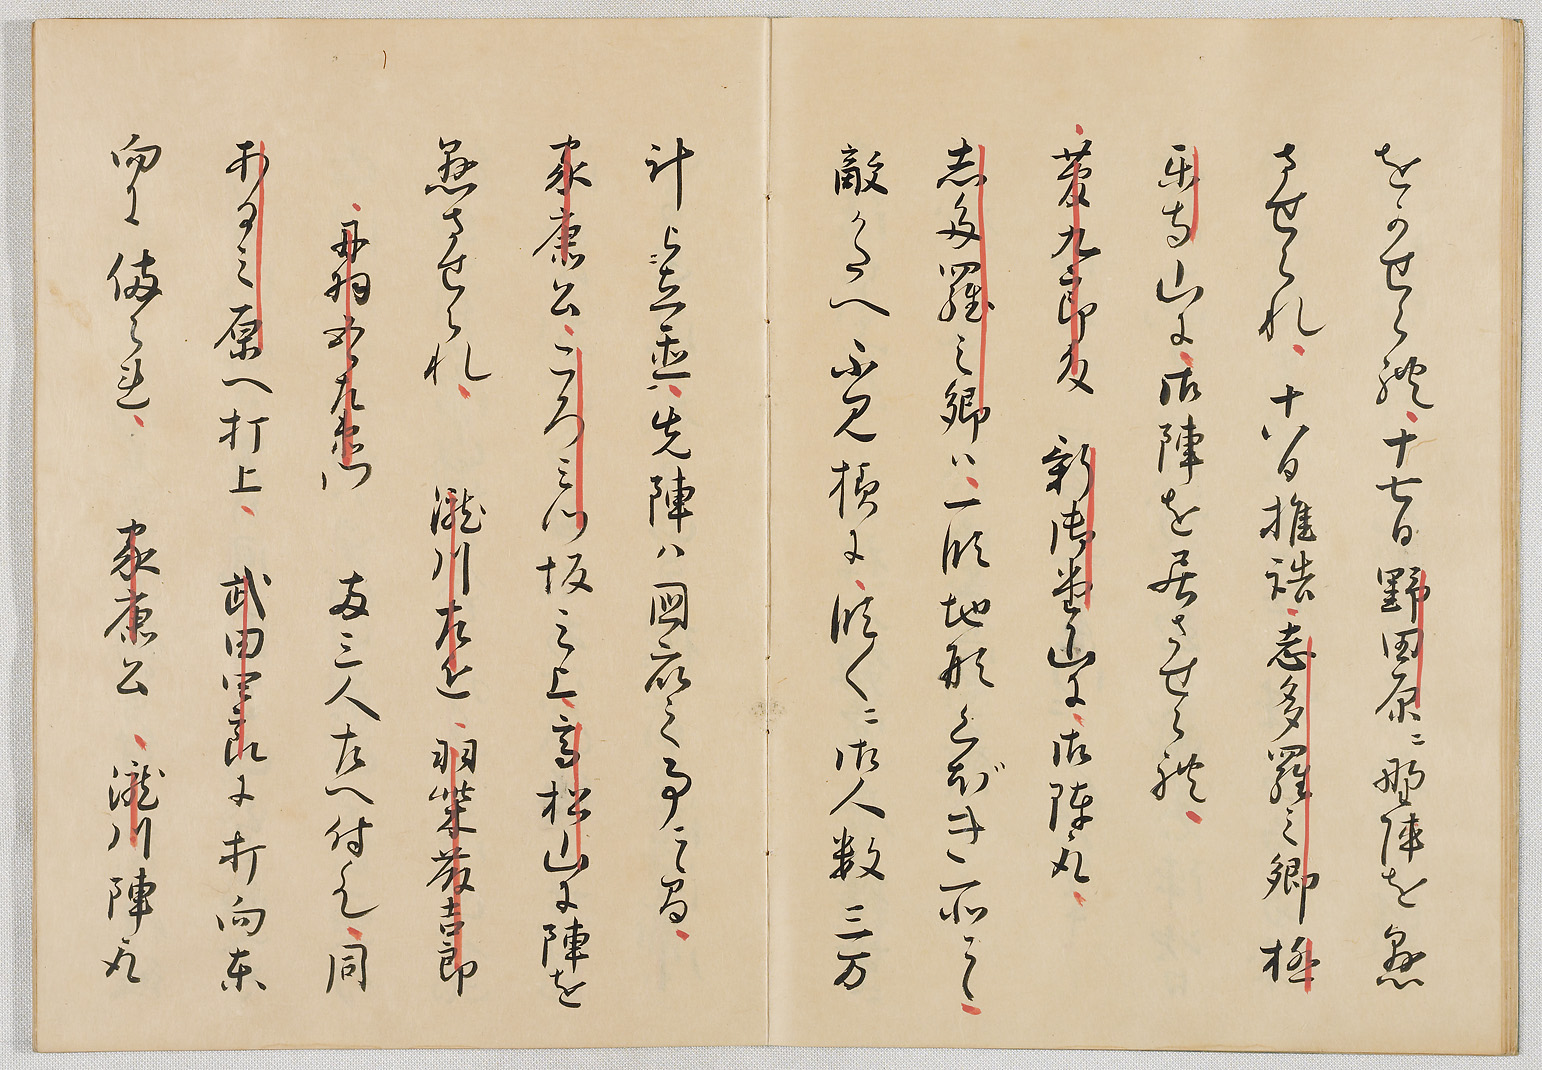 をかせられ十七日野田原ニ野陣を懸
させられ十八日推詰志多羅之郷極
楽寺山に御陣を居させられ
菅九郎殿 新御堂山に御陣取
志多羅之郷ハ一段地形くぼき所候
敵かたへ不見様に段々ニ御人数三万
計被立置先陣ハ国衆之事候間
家康公ころみつ坂之上高松山に陣を
懸させられ 滝川左近羽柴藤吉郎
丹羽五郎左衛門 両三人左へ付て同
あるみ原へ打上武田四郎に打向東
向に備られ 家康公 滝川陣取